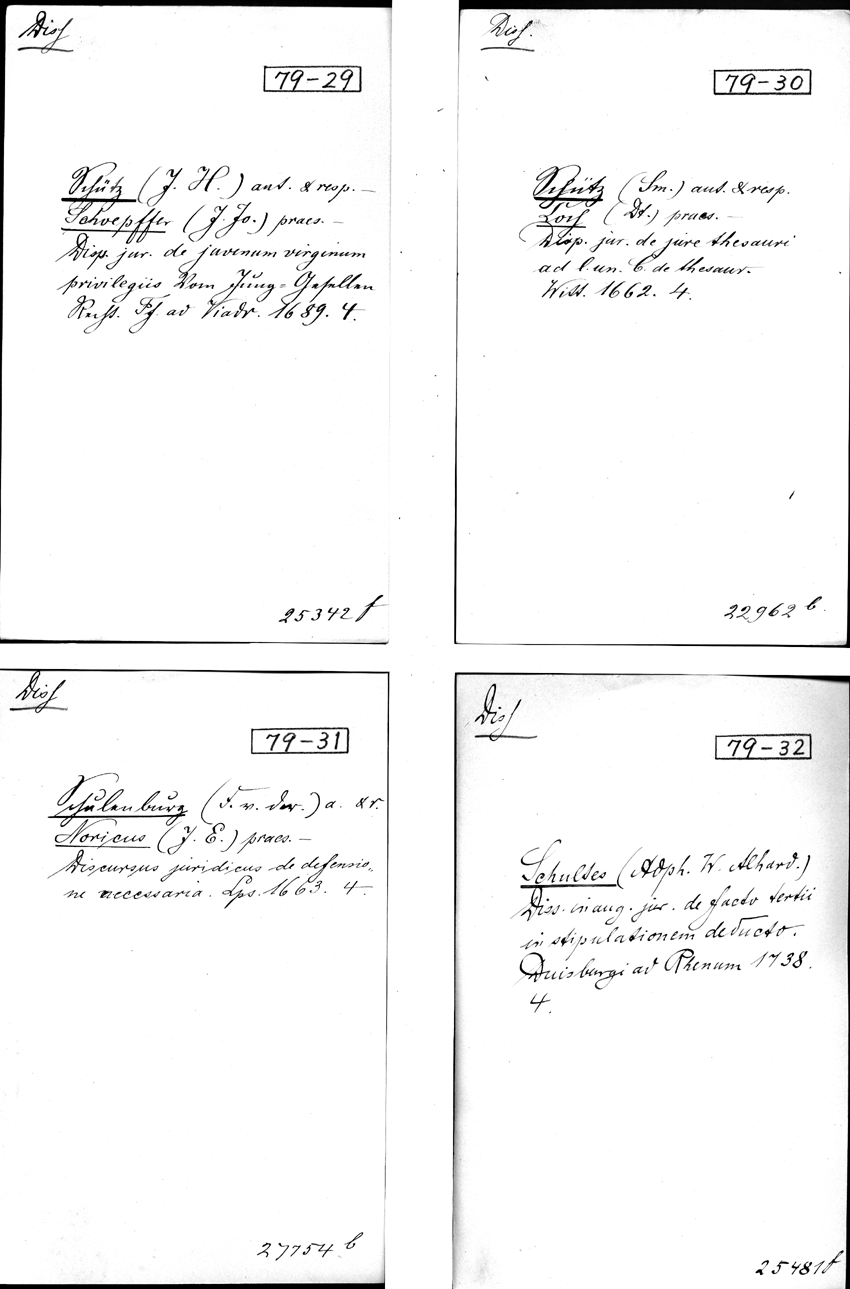 Diss
79-29
Schütz (J. H.) aut. & resp. —
Schoepffer (J. Jo.) praes. —
Disp. jur. de juvenum virginum
privilegiis Vom Jung-Gesellen
Recht. Ff. ad Viadr. 1689. 4.
25342 f
Diss.
79-30
Schütz (Sm.) aut. & resp.
(Dt.) praes. —
Disp. jur. de jure thesauri
ad l. un. C. de thesaur.
Witt. 1662. 4.
22962 b.
Diss
79-31
Schulenburg (F. v. der.) a. & r.
Noricus (J. E.) praes. —
Discursus juridicus de defensio-
ne necessaria. Lps. 1663. 4.
27754 b
Diss
79-32
Schultes (Adph. W. Alhard.)
Diss. inaug. jur. de facto tertii
in stipulationem deducto.
Duisburgi ad Rhenum 1738.
4.
25481 f